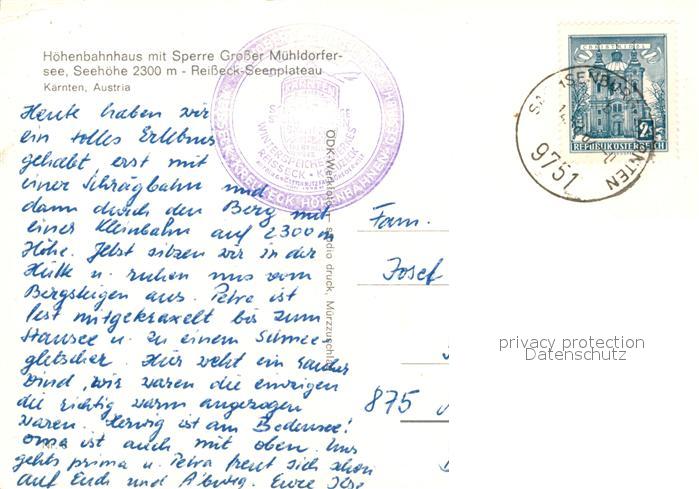 Höhenbahnhaus mit Sperre Großer Mühldorfer-
see, Seehöhe 2300 m - Reißeck-Seenplateau
Kärnten, Austria
Heute haben wir
ein tolles Erlebnis
gehabt erst mit
einer Schrägbahn und
dann durch den Berg mit
einer Kleinbahn auf 2300 m
Höhe. Jetzt sitzen wir in der
Hütte u. ruhen uns vom
Bergsteigen aus. Petra ist
fest mitgekraxelt bis zum
Stausee u. zu einem Schnee-
gletscher. Hier weht ein
Wind, wir waren die einzigen
die richtig warm angezogen
waren. Herwig ist am Bodensee!
Oma ist auch mit oben. Uns
gehts prima u. Petra freut sich schon
auf Euch und A'burg. Eure
KÄRNTEN
REISSECK
HÖHENBAHN
ODK-Werkfoto
studio druck, Mürzzuschlag
CHRISTKINDL
2 S
REPUBLIK ÖSTERREICH
9751
Fam.
Josef
875
privacy protection
Datenschutz